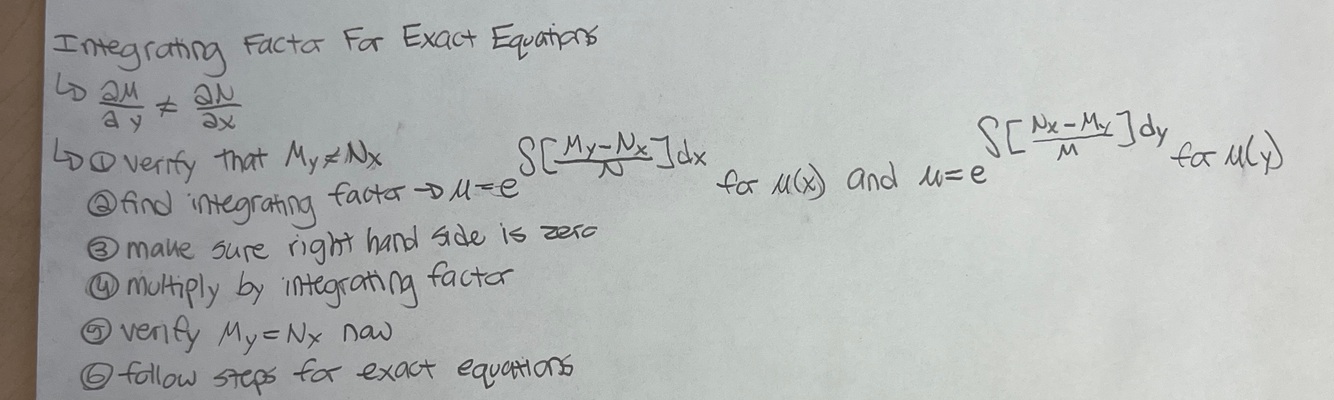 Integrating Factor For Exact Equations
↳ ∂M/∂y ≠ ∂N/∂x
↳ ① verify that My ≠ Nx
② find integrating factor → μ = e^∫[(My - Nx)/N]dx for μ(x) and μ = e^∫[(Nx - My)/M]dy for μ(y)
③ make sure right hand side is zero
④ multiply by integrating factor
⑤ verify My = Nx now
⑥ follow steps for exact equations